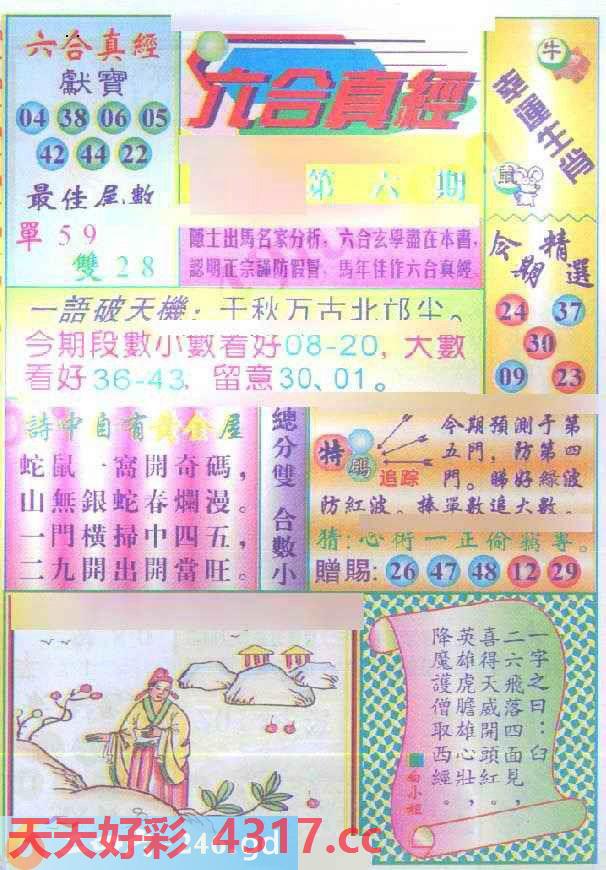 六合真經
獻寶
04 38 06 05
42 44 22
最佳尾數
單59
雙28
六合真經
第六期
隱士出馬名家分析，六合玄學盡在本書，
認明正宗謹防假冒，馬年佳作六合真經
牛
幸運生肖
鼠
今期精選
24 37
30
09 23
一語破天機：千秋万古北邙尘。
今期段數小數看好08-20，大數
看好36-43，留意30、01。
詩中自有黃金屋
蛇鼠一窩開奇碼，
山無銀蛇春爛漫。
一門橫掃中四五，
二九開出開當旺。
總分雙 合數小
特碼
追踪
今期預測于第
五門，防第四
門。睇好綠波
防紅波。捧單數追大數。
猜：心術一正偷窺專。
贈賜：26 47 48 12 29
一字之曰：白
二六飛落四面見，
喜得天威開頭紅，
英雄虎膽雄心壯，
降魔護僧取西經。
白小姐
天天好彩 4317.cc
246.gd